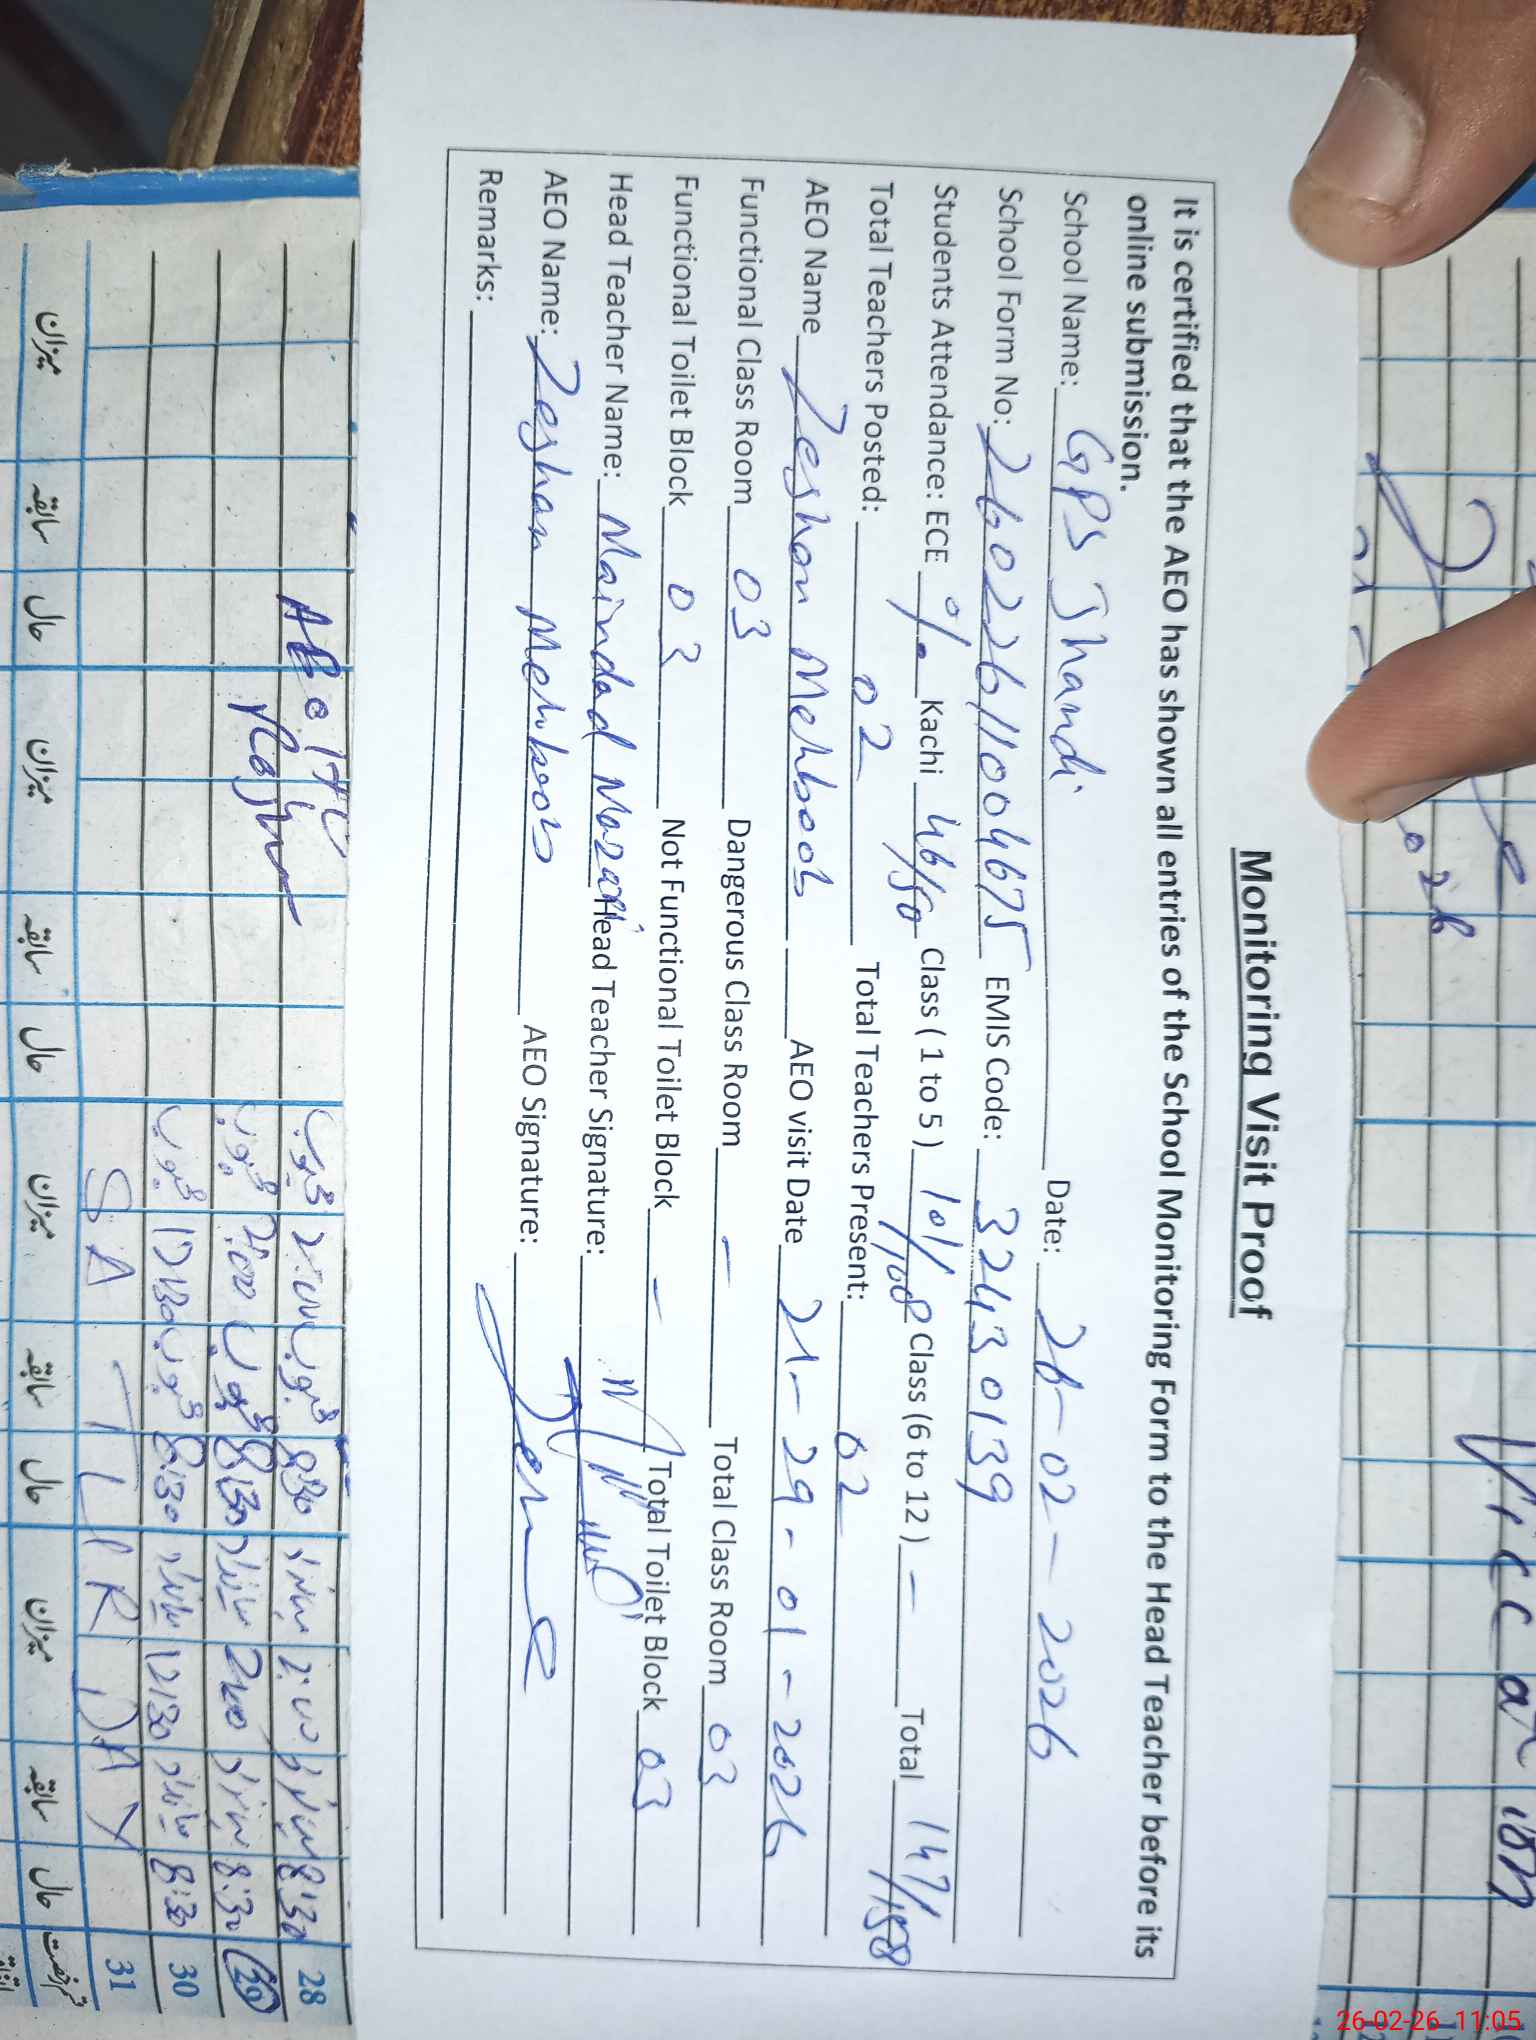 Monitoring Visit Proof
It is certified that the AEO has shown all entries of the School Monitoring Form to the Head Teacher before its
online submission.
School Name: GPS Jhandi Date: 26-02-2026
School Form No: 26022611004675 EMIS Code: 32430139
Students Attendance: ECE 0/0 Kachi 46/50 Class ( 1 to 5 ) 101/108 Class (6 to 12 ) - Total 147/158
Total Teachers Posted: 02 Total Teachers Present: 02
AEO Name Zeshan Mehboob AEO visit Date 29-01-2026
Functional Class Room 03 Dangerous Class Room - Total Class Room 03
Functional Toilet Block 03 Not Functional Toilet Block - Total Toilet Block 03
Head Teacher Name: Maindad Mazari Head Teacher Signature:
AEO Name: Zeshan Mehboob AEO Signature:
Remarks:
28 8:30 2:00 8:30 2:00
29 8:30 2:00 8:30 2:00
30 8:30 12:30 8:30 12:30
31 SATURDAY
میزان سابقہ حال میزان سابقہ حال میزان سابقہ حال میزان سابقہ حال
26-02-26 11:05